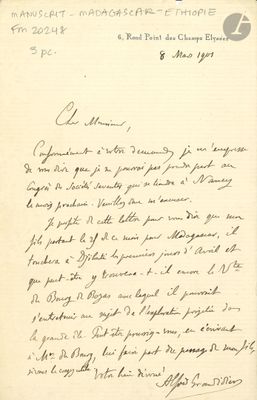 MANUSCRIT - MADAGASCAR - ETHIOPIE
FM 20248
3 pc.
6, Rond Point des Champs Elysées
8 Mars 1901
Cher Monsieur,
Conformément à votre demande, je m'empresse
de vous dire que je ne pourrai pas prendre part au
Congrès des Sociétés savantes qui se tiendra à Nancy
le mois prochain. Veuillez donc m'excuser.
Je profite de cette lettre pour vous dire que mon
fils partant le 25 de ce mois pour Madagascar, il
touchera à Djibouti les premiers jours d'Avril et
que peut-être y trouvera-t-il encore le Vte
de Bourg de Bozas avec lequel il pourrait
s'entretenir au sujet de l'exploration projetée dans
la grande île. Peut-être pourriez-vous, en écrivant
à Mr de Bourg, lui faire part du passage de mon fils,
Votre bien dévoué
Alfred Grandidier